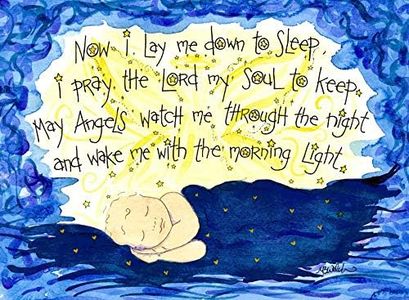 Now I Lay me down to Sleep,
i pray the Lord my Soul to keep.
May Angels watch me through the night
and wake me with the morning Light.